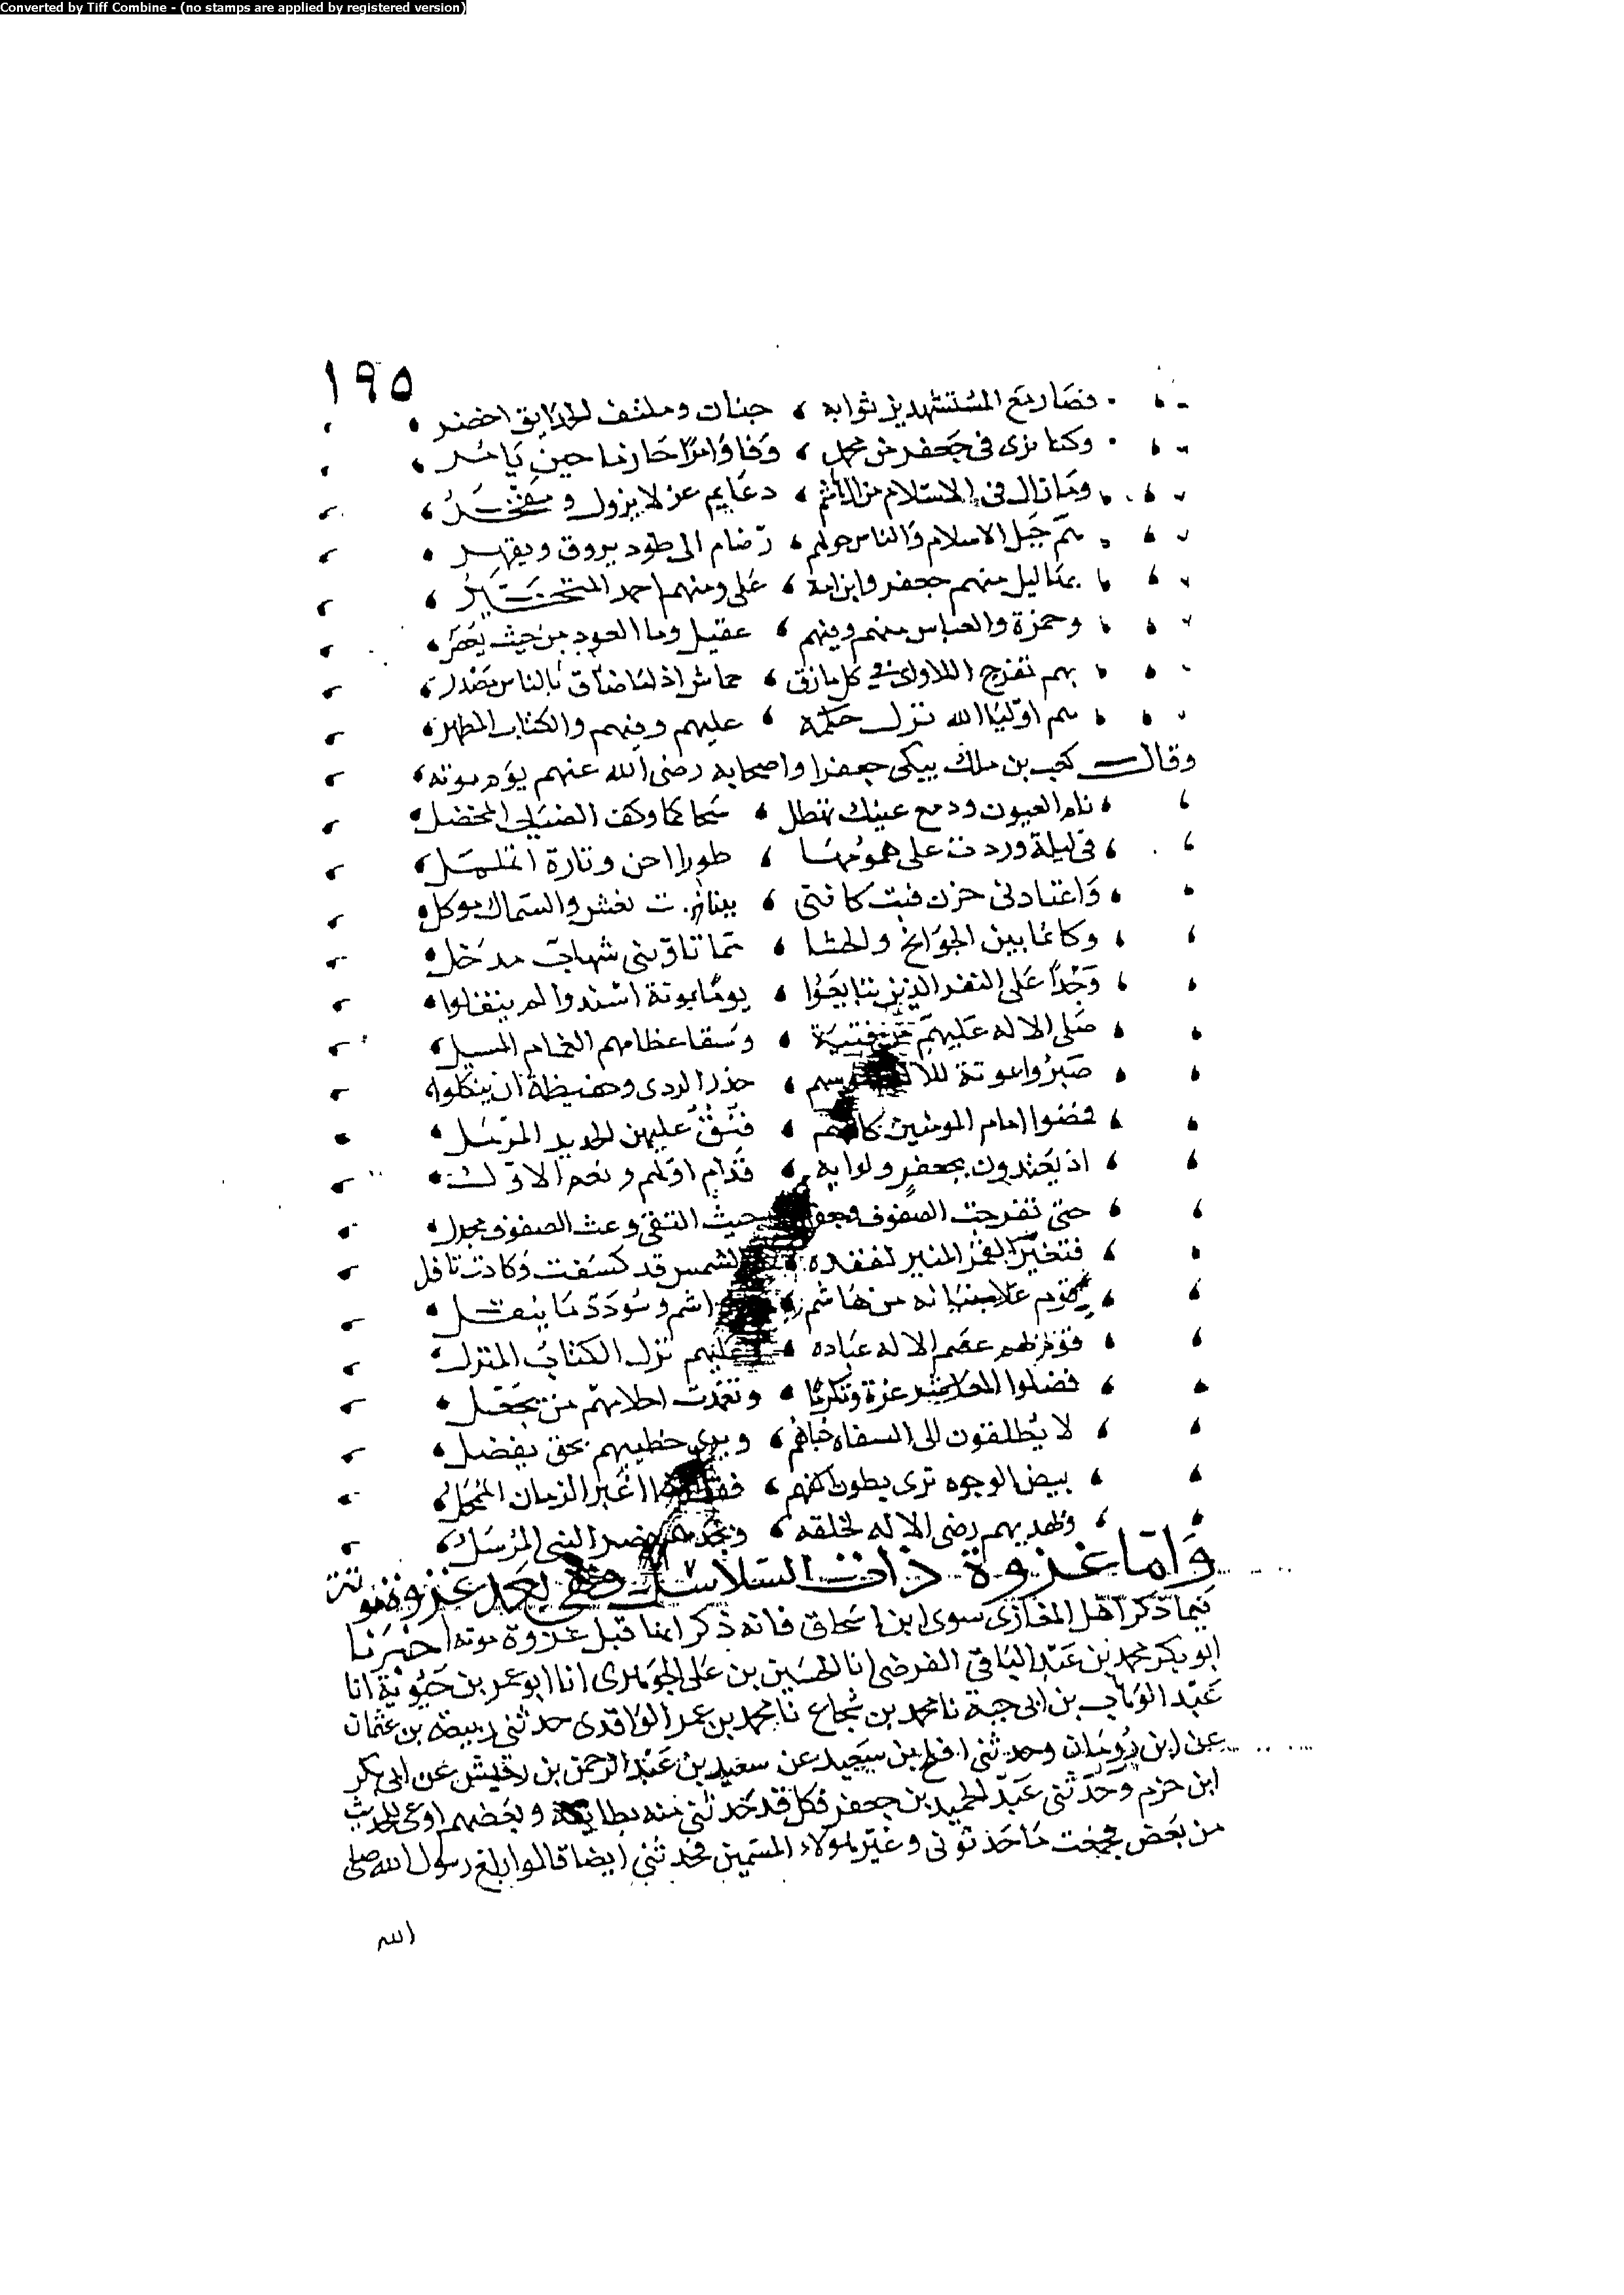 Converted by Tiff Combine - (no stamps are applied by registered version)
١٩٥
فصار مع المستشهدين ثوابه ، جنات وملتف الحدايق اخضر
وكنا نرى في جعفر من محمد ، وفاوامرا حازما حين يامر
وما زال في الاسلام من ال هاشم ، دعايم عز لا يزول ومفخر
هم جبل الاسلام والناس حولهم ، رضام الى طود يروق ويقهر
بهاليل منهم جعفر وابن امه ، على ومنهم احمد المتخير
وحمزة والعباس منهم ومنهم ، عقيل وما العود من حيث يعصر
بهم تفرج اللاوى في كل مازق ، عماس اذا ما ضاق بالناس مصدر
هم اوليا الله نزل حكمه ، عليهم وفيهم والكتاب المطهر
وقال كعب بن ملك يبكى جعفرا واصحابه رضى الله عنهم يوم موته
نام العيون ودمع عينك تهطل ، سحا كما وكف الضباب المخضل
في ليلة وردت على همومها ، طورا احن وتارة اتململ
واعتادنى حزن فبت كانني ، ببنات نعش والسماك موكل
وكانما بين الجوانح والحشا ، مما تاوبنى شهاب مدخل
وجدا على النفر الذين تتابعوا ، يوما بموتة اسندوا لم ينقلوا
صلى الاله عليهم من فتية ، وسقا عظامهم الغمام المسبل
صبروا بموتة للاله نفوسهم ، حذر الردى وحفيظة ان ينكلوا
فمضوا امام المومنين كانهم ، فنق عليهن الحديد المرسل
اذ يهتدون بجعفر ولوايه ، قدام اولهم ونعم الاول
حتى تفرجت الصفوف وجعفر حيث التقى وعث الصفوف مجدل
فتغير القمر المنير لفقده ، الشمس قد كسفت وكادت تافل
قوم علا بنيانه من هاشم ، اشم وسودد ما ينقل
قوم بهم عصم الاله عباده ، عليهم نزل الكتاب المنزل
فضلوا المعاشر عزة وتكرما ، وتغمدت احلامهم من يجهل
لا يطلقون الى السفاه حباهم ، ويرى خطيبهم بحق يفصل
بيض الوجوه ترى بطون اكفهم ، اغبر الزمان الممحل
وبهديهم رضى الاله لخلقه ، وبجدهم نصر النبى المرسل
واما غزوة ذات السلاسل فهى بعد غزوة موتة
فيما ذكر اهل المغازى سوى ابن اسحاق فانه ذكر انها قبل غزوة موته اخبرنا
ابو بكر محمد بن عبد الباقي الفرضى انا الحسين بن على الجوهرى انا ابو عمر بن حيوية انا
عبد الوهاب بن ابى حية نا محمد بن شجاع نا محمد بن عمر الواقدى حدثنى ربيعة بن عثمان
عن ابن رومان وحدثنى افلح بن سعيد عن سعيد بن عبد الرحمن بن رقيش عن ابى بكر
ابن حزم وحدثنى عبد الحميد بن جعفر فكل قد حدثنى منه بطايفة وبعضهم اوعى للحديث
من بعض فجمعت ما حدثونى وغير هولاء المسمين فحدثنى ايضا قالوا بلغ رسول الله صلى
الله